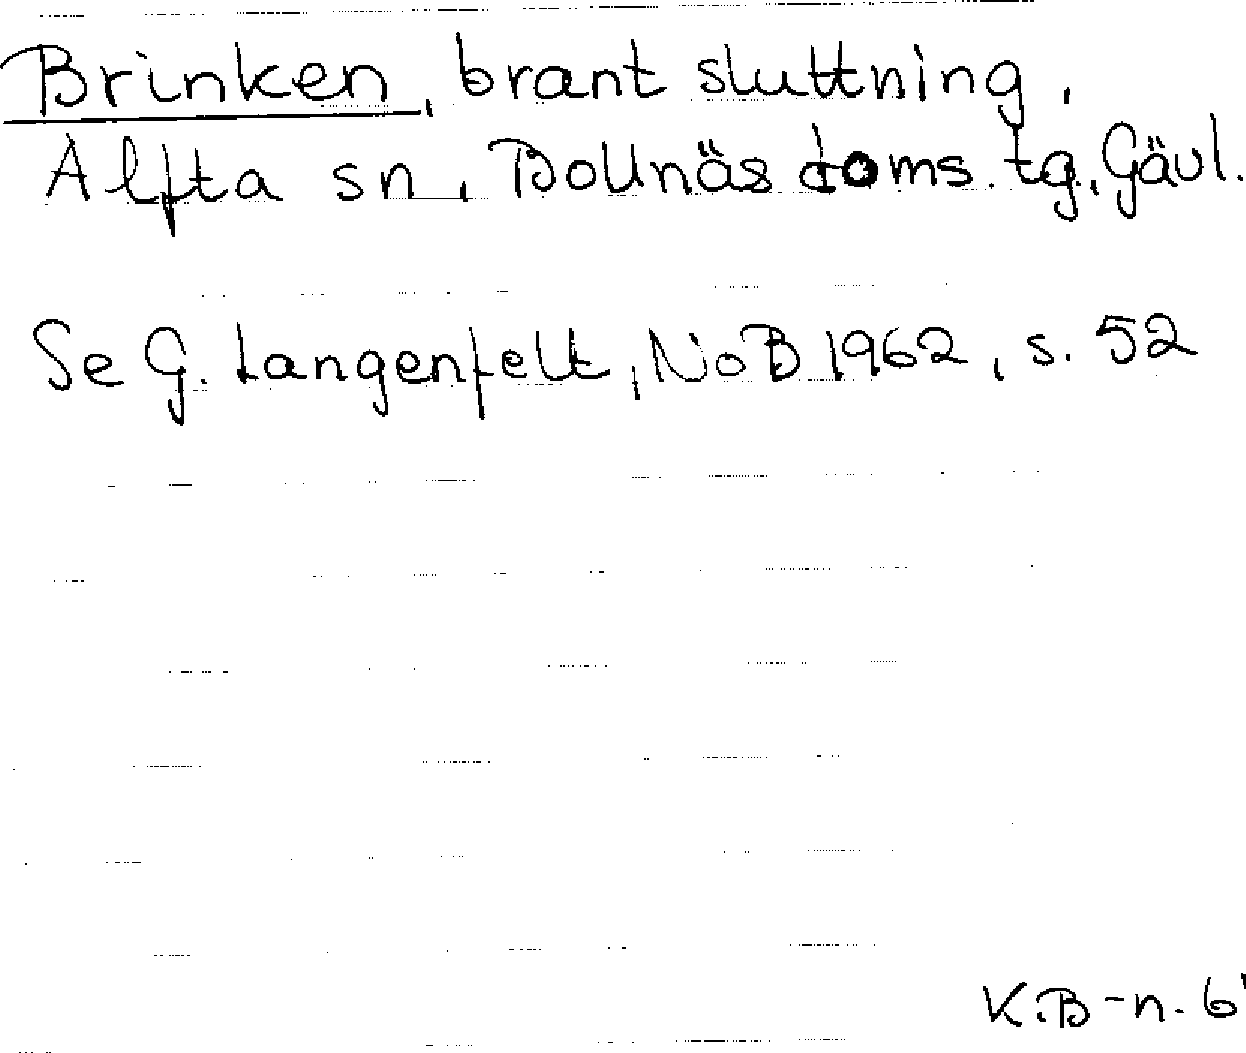 Brinken, brant sluttning,
Alfta sn, Bollnäs doms. tg, Gävl.
Se G. Langenfelt, NoB 1962, s. 52
K.B-n. 6